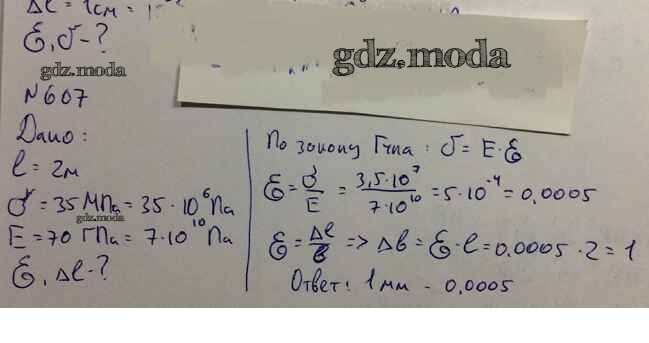 Δl = 1см =
ε, σ - ?
gdz.moda
gdz.moda
№607
Дано:
l = 2м
σ = 35 МПа = 35 · 10⁶ Па
gdz.moda
E = 70 ГПа = 7 · 10¹⁰ Па
ε, Δl - ?
По закону Гука : σ = E · ε
ε = σ/E = 3,5 · 10⁷/7 · 10¹⁰ = 5 · 10⁻⁴ = 0,0005
ε = Δl/l => Δl = ε · l = 0,0005 · 2 = 1
Ответ: 1мм - 0,0005